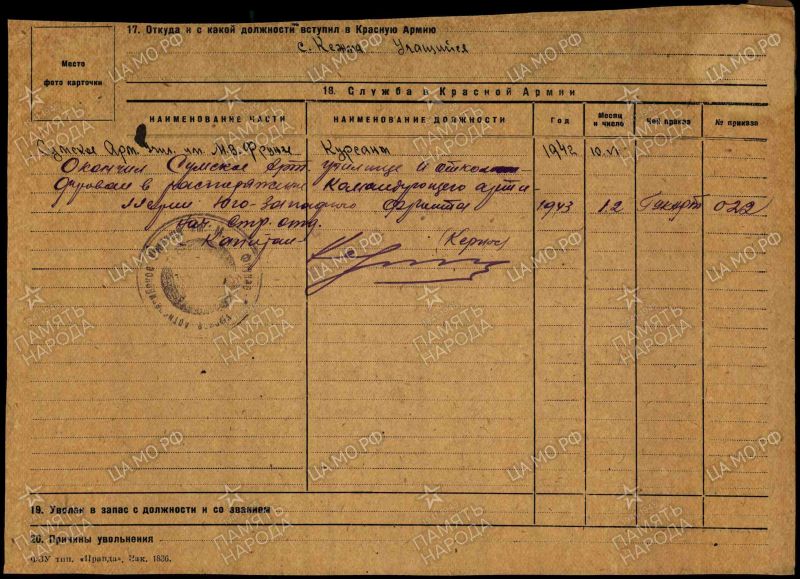 17. Откуда и с какой должности вступил в Красную Армию
с. Кежма Учащийся
Место
фото карточки
18. Служба в Красной Армии
НАИМЕНОВАНИЕ ЧАСТИ НАИМЕНОВАНИЕ ДОЛЖНОСТИ ГОД Месяц и число Чей приказ № приказа
Сумское Арт. Учил. им. М.В. Фрунзе Курсант 1942 10.VI
Окончил Сумское Арт училище и откоман
дирован в распоряжение Командующего арти
ллерии Юго-Западного Фронта 1943 12 022
Нач. стр. отд.
Капитан
19. Уволен в запас с должности и со званием
20. Причины увольнения
тип. «Правда», Зак. 1836.
ПАМЯТЬ НАРОДА
ЦАМО.РФ